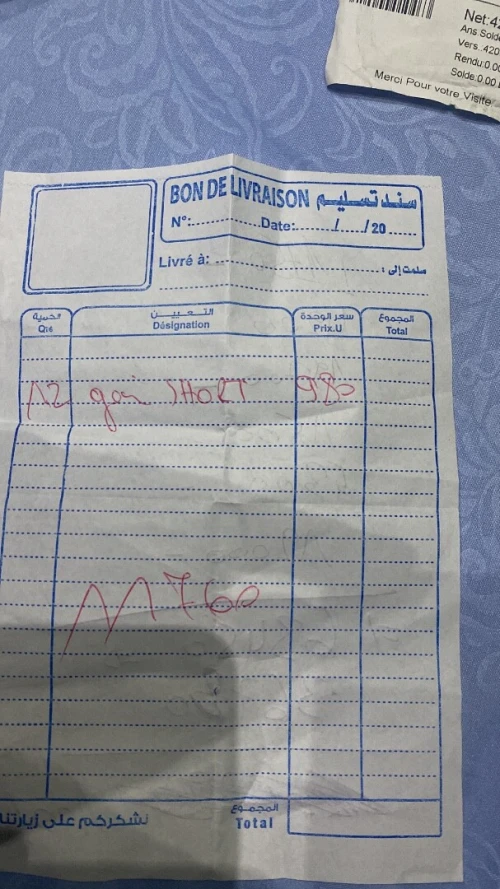 Net:42
Ans Solde
Vers..420
Rendu:0.00
Solde:0.00
Merci Pour votre Visite
BON DE LIVRAISON سند تسليم
N°:.............Date:......../..../20......
Livré à: .............................. سلمت إلى :
الكمية التعييــن سعر الوحدة المجموع
Qté Désignation Prix.U Total
12 SHORT 980
11760
نشكركم على زيارتنا المجموع
Total